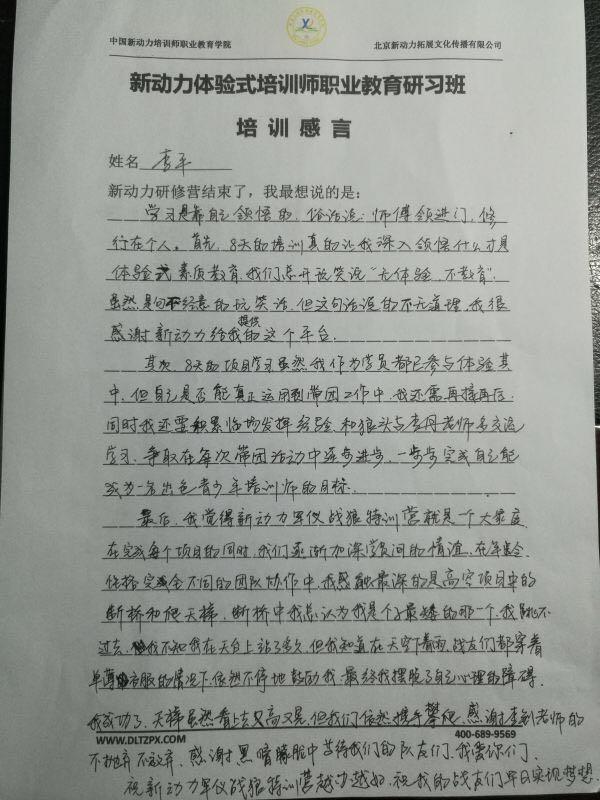 中国新动力培训师职业教育学院 北京新动力拓展文化传播有限公司
新动力体验式培训师职业教育研习班
培训感言
姓名 李平
新动力研修营结束了，我最想说的是：
学习是靠自己领悟的，俗话说：师傅领进门，修
行在个人。首先，8天的培训真的让我深入领悟什么才是
体验式素质教育，我们总开玩笑说"无体验，不教育"，
虽然是句不经意的玩笑话，但这句话说的不无道理，我很
感谢新动力给我提供的这个平台。
其次，8天的项目学习虽然我作为学员都已参与体验其
中，但自己是否能真正运用到带团工作中，我还需再接再厉，
同时我还需积累临场发挥经验，和狼头与李丹老师多交流
学习，争取在每次带团活动中逐步进步，一步步完成自己能
成为一名出色青少年培训师的目标。
最后，我觉得新动力军仪战狼特训营就是个大家庭，
在完成每个项目的同时，我们逐渐加深学员间的情谊，在年龄
性格完全不同的团队协作中，我感触最深的是高空项目中的
断桥和天梯，断桥中我总认为我是个子最矮的那一个，我跳不
过去，我不知我在天台上站了多久，但我知道在天空下着雨，战友们都穿着
单薄衣服的情况下依然不停地鼓励我，最终我摆脱了自己心理的障碍，
我成功了，天梯虽然看上去又高又晃，但我们依然携手攀爬，感谢李老师的
WWW.DLTZPX.COM 400-689-9569
不抛弃不放弃，感谢黑暗朦胧中等待我们的队友们，我爱你们。
祝新动力军仪战狼特训营越办越好，祝我的战友们早日实现梦想